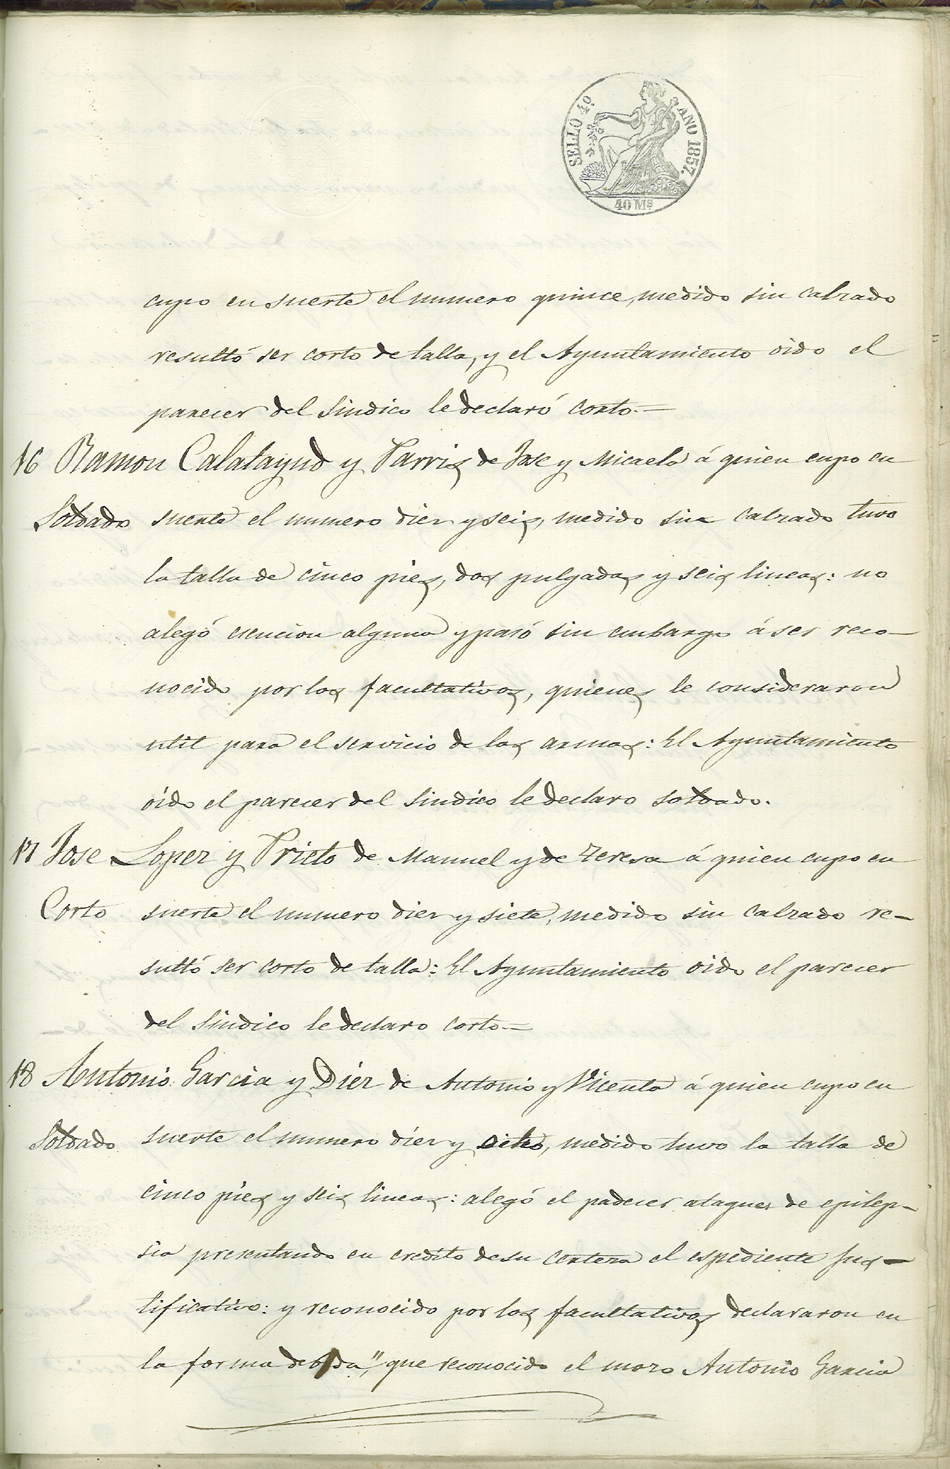 SELLO 4º AÑO 1857.
40 Mˢ
cupo en suerte el numero quince, medido sin calzado
resultó ser corto de talla, y el Ayuntamiento oido el
parecer del Sindico le declaró corto.—
16 Ramon Calatayud y Parriz de Jose y Micaela á quien cupo en
Soldado suerte el numero diez y seis, medido sin calzado tuvo
la talla de cinco pies, dos pulgadas y seis lineas: no
alegó esencion alguna y pasó sin embargo á ser reco—
nocido por los facultativos, quienes le consideraron
util para el servicio de las armas: El Ayuntamiento
óido el parecer del Sindico le declaro soldado.
17 Jose Lopez y Prieto de Manuel y de Teresa á quien cupo en
Corto suerte el numero diez y siete, medido sin calzado re—
sultó ser corto de talla: El Ayuntamiento oido el parecer
del Sindico le declaro corto.—
18 Antonio Garcia y Diez de Antonio y Vicenta á quien cupo en
Soldado suerte el numero diez y ocho, medido tuvo la talla de
cinco pies y seis lineas: alegó el padecer ataques de epilep—
sia presentando en credito de su certeza el espediente jus—
tificativo: y reconocido por los facultativos declararon en
la forma debida "que reconocido el mozo Antonio Garcia